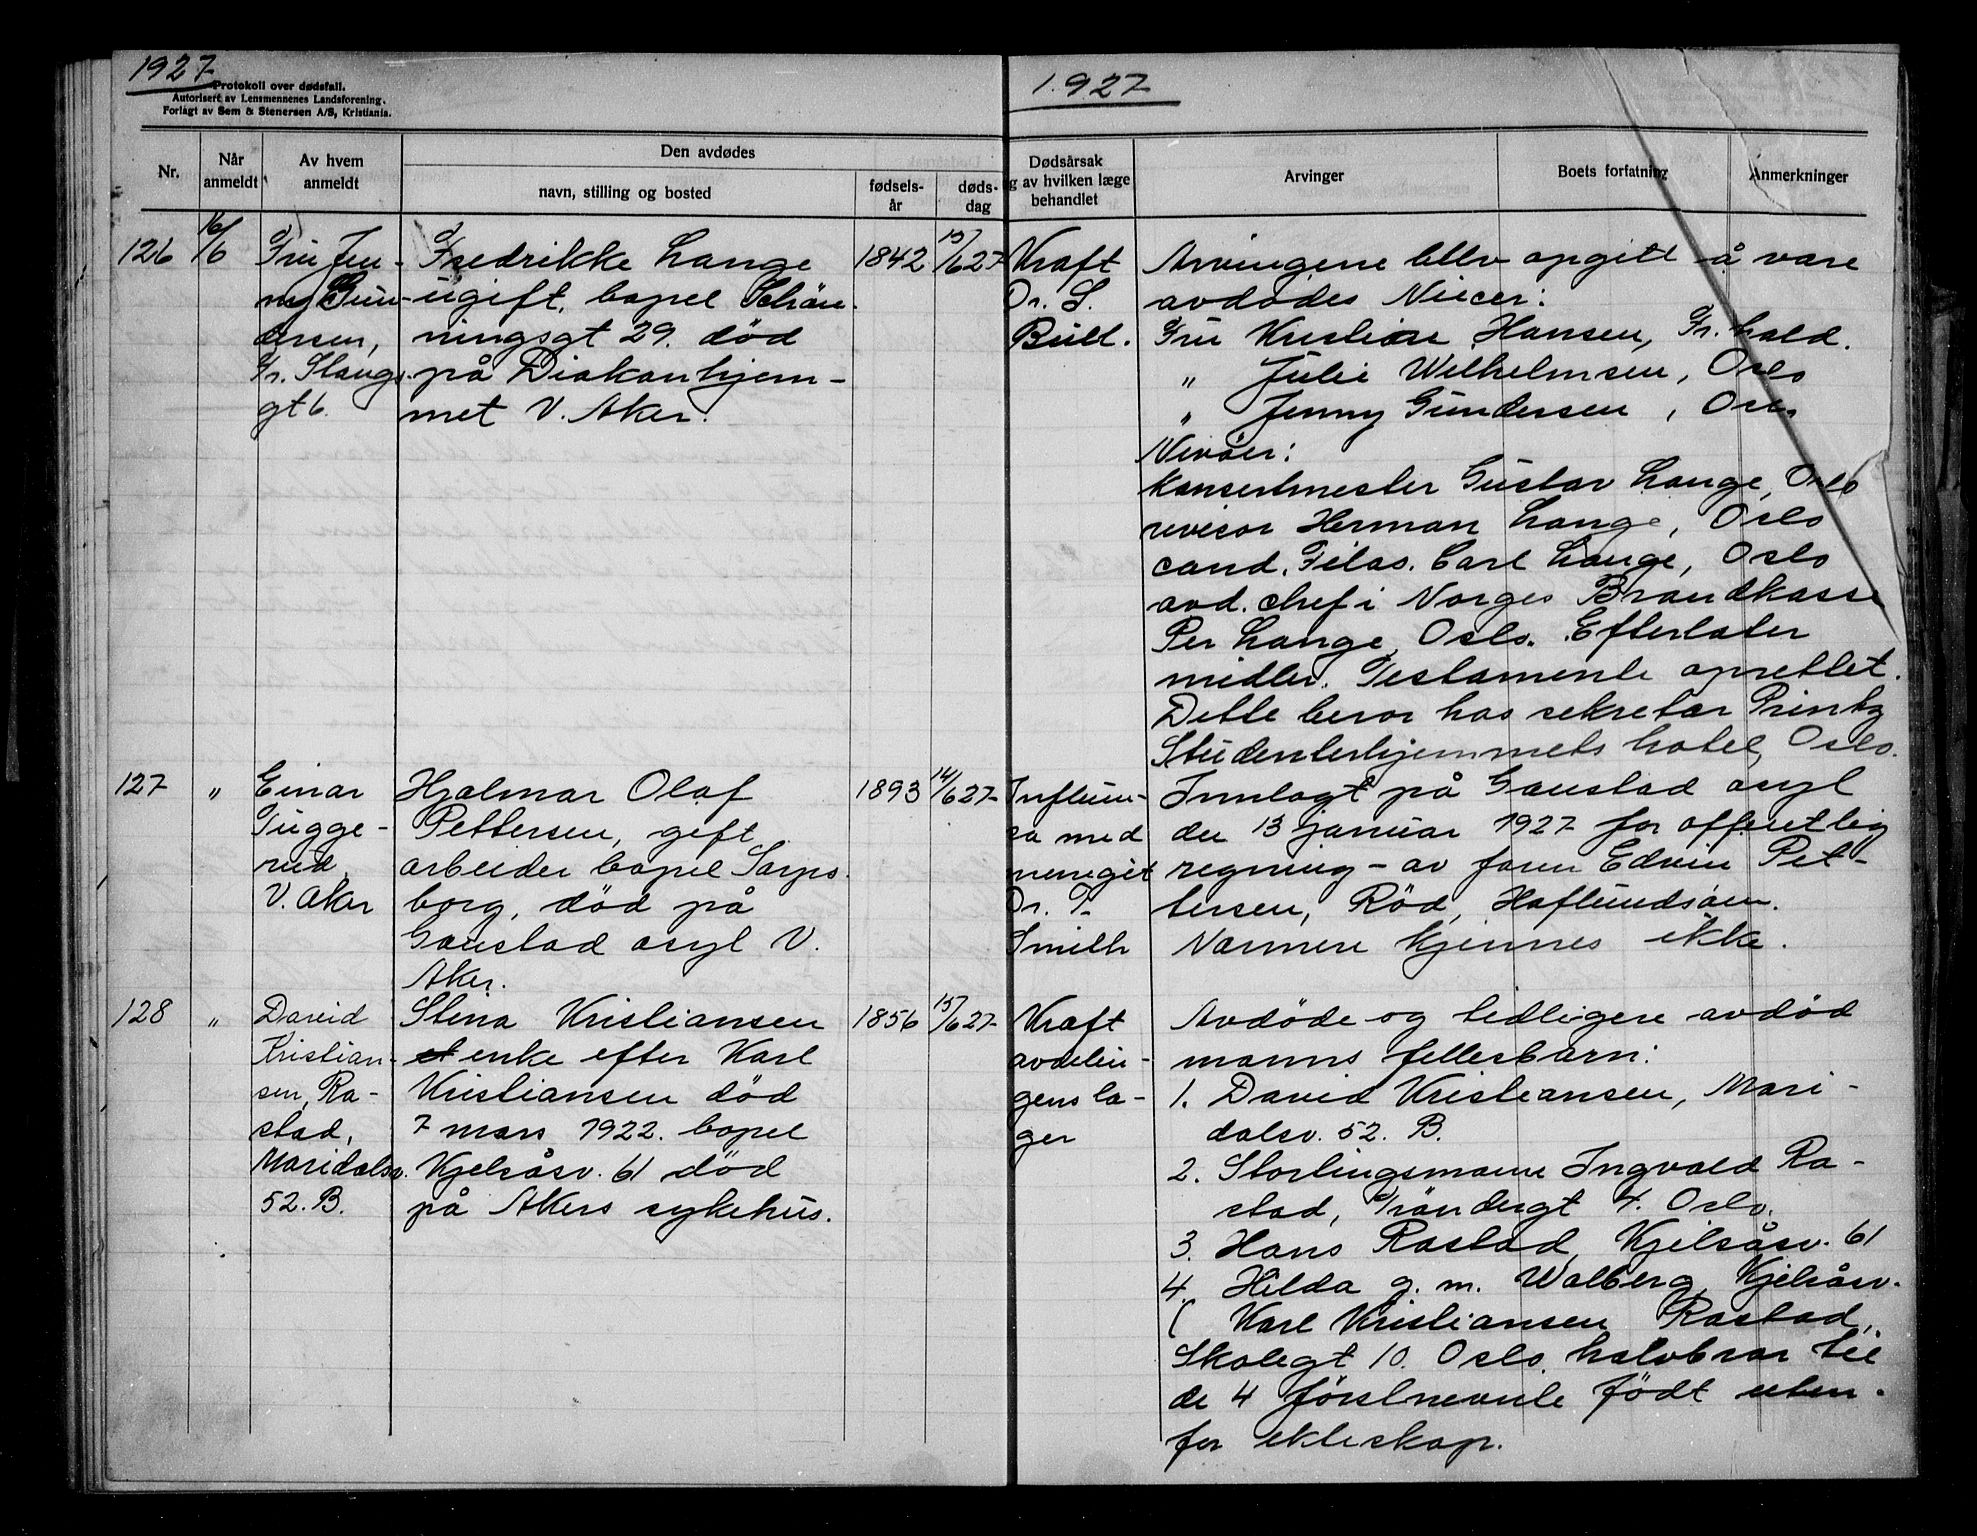 1927
Protokoll over dødsfall.
Autorisert av Lensmennenes Landsforening.
Forlagt av Sem & Stenersen A/S, Kristiania.
Nr.
Når anmeldt
Av hvem anmeldt
Den avdødes
navn, stilling og bosted
fødsels-år
døds-dag
126
16/6
Fru Jen-
ny Gun-
dersen,
Fr. Stangs
gt 6.
Fredrikke Lange
ugift, bopel Schøn-
ningsgt 29. død
på Diakonhjem-
met V. Aker.
1842
15/6 27
127
"
Einar
Tugge-
rud
V. Aker
Hjalmar Olaf
Pettersen, gift
arbeider bopel Sarps-
borg, død på
Gaustad asyl V.
Aker.
1893
14/6 27
128
"
David
Kristian-
sen, Ra-
stad,
Maridalsv.
52. B.
Stina Kristiansen
enke efter Karl
Kristiansen død
7 mars 1922. bopel
Kjelsåsv. 61 død
på Akers sykehus.
1856
15/6 27
1927
Dødsårsak
g av hvilken læge
behandlet
Arvinger
Boets forfatning
Anmerkninger
Kraft
Dr. S.
Bull.
Arvingene blev opgitt å være
avdødes Niecer:
Fru Kristiane Hansen, Fr.hald.
" Julie Wilhelmsen, Oslo
" Jenny Gundersen, Oslo
Nevøer:
Konsertmester Gustav Lange, Oslo
revisor Herman Lange, Oslo
cand. Filos. Carl Lange, Oslo
avd. chef i Norges Brandkasse
Per Lange, Oslo. Efterlater
midler. Testamente oprettet.
Dette beror hos sekretær Printz
Studenterhjemmets hotel, Oslo.
Influen-
sa med
meningit
Dr. T.
Smith
Innlagt på Gaustad asyl
den 13 januar 1927 for offentlig
regning - av faren Edvin Pet-
tersen, Rød, Haflundsøen.
Nærmere kjennes ikke.
Kraft
avdelin-
gens læ-
ger
Avdøde og tidligere avdød
manns fellesbarn:
1. David Kristiansen, Mari-
dalsv. 52. B.
2. Stortingsmann Ingvald Ra-
stad, Trøndergt 4. Oslo.
3. Hans Rastad, Kjelsåsv. 61
4. Hilda g. m. Walberg, Kjelsåsv.
( Karl Kristiansen Rastad,
Skolegt 10. Oslo. halvbror til
de 4 førstnevnte født uten-
for ekteskap.